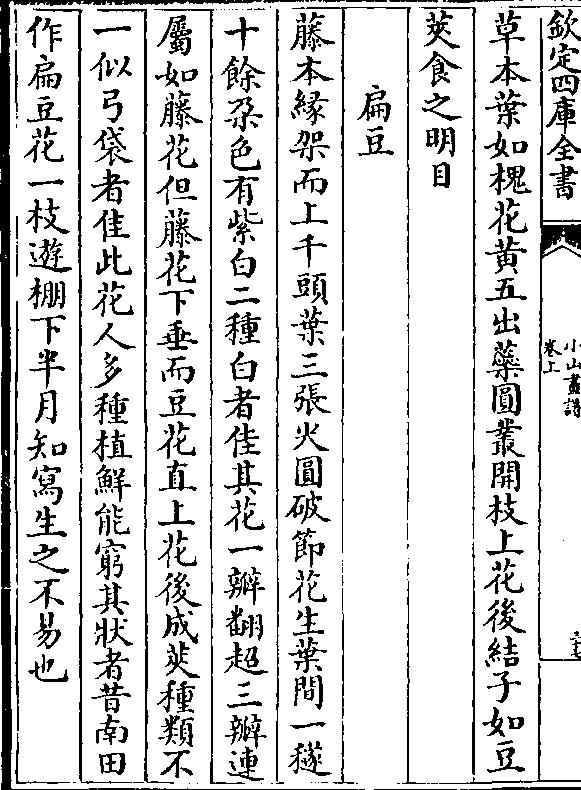 欽定四庫全書
小山畫譜
卷上
草本葉如槐花黄五出蘂圓叢開枝上花後結子如豆
莢食之明目
扁豆
藤本緣架而上千頭葉三張火圓破節花生葉間一穟
十餘朶色有紫白二種白者佳其花一瓣翻超三瓣連
屬如藤花但藤花下垂而豆花直上花後成莢種類不
一似弓袋者佳此花人多種植鮮能窮其狀者昔南田
作扁豆花一枝遊棚下半月知寫生之不易也